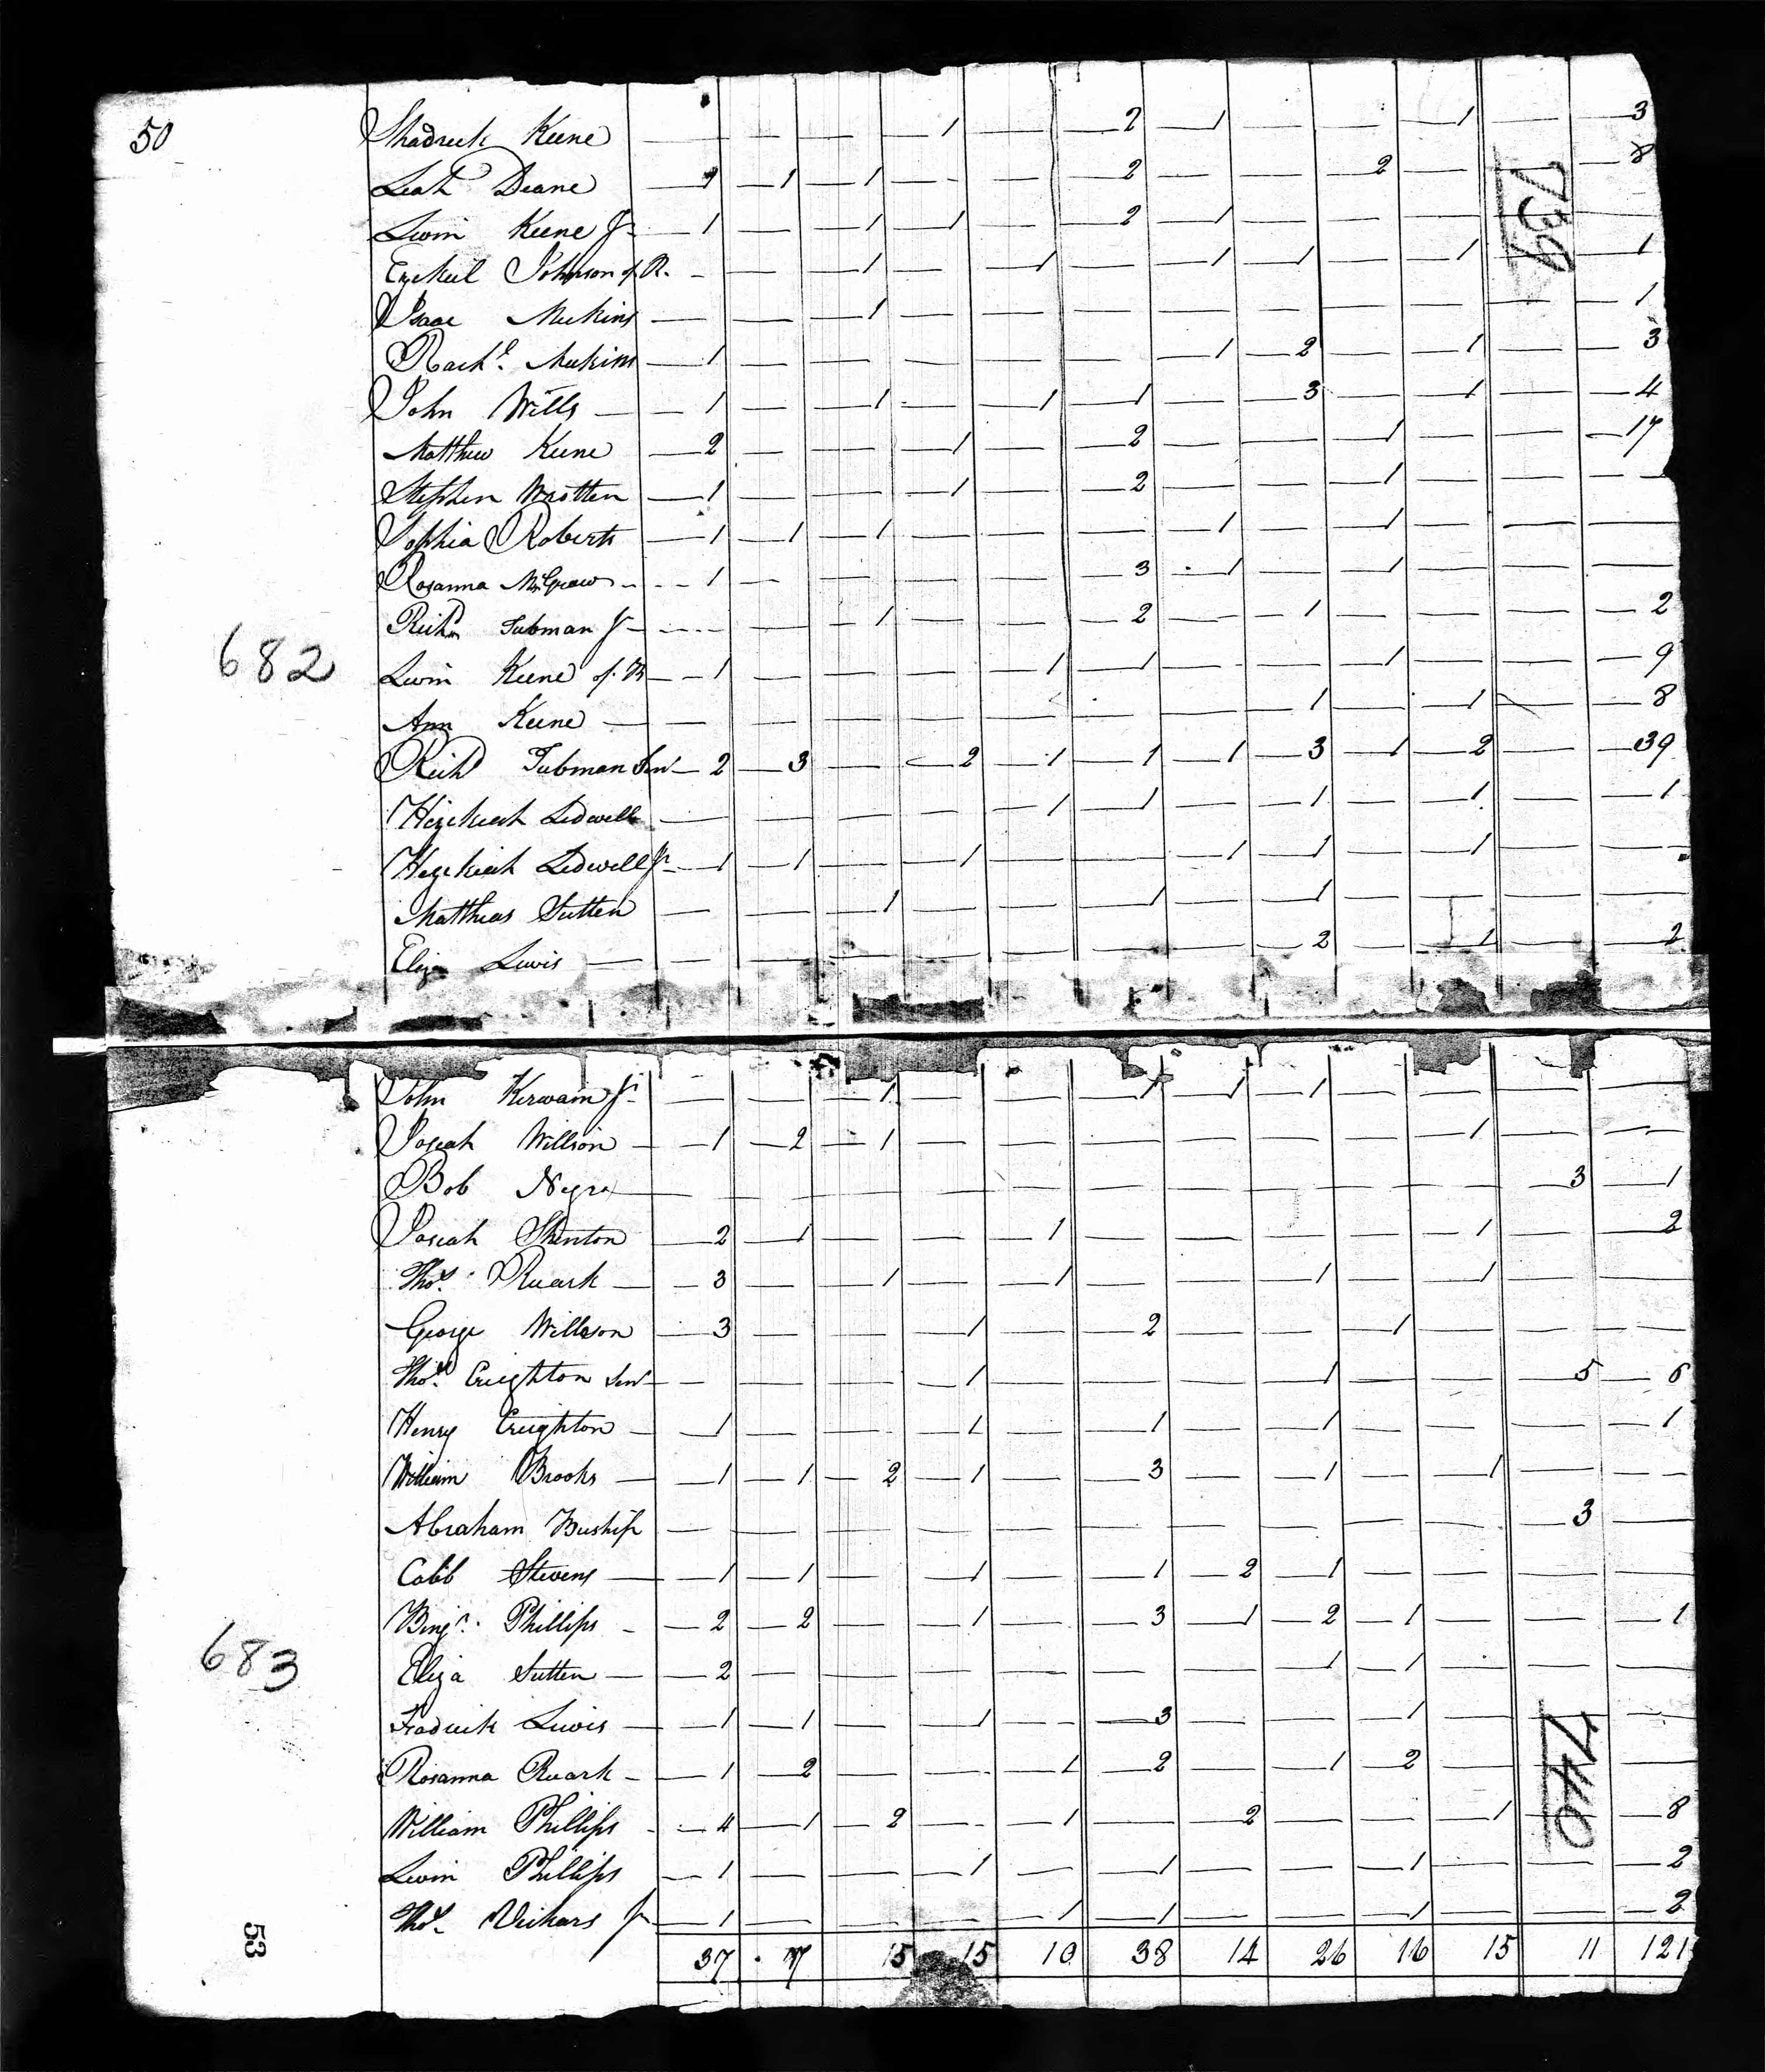 50
Shadrick Keene — — — 1 — 2 — 1 — — 1 — 3
Leah Deane — 1 — 1 — — 2 — — 2 — — 8
Levin Keene Jr — 1 — — 1 — 1 — 2 — 1 — — — —
Ezekiel Johnson of R. — — 1 — 1 — 1 — 1 — 1 — 1
739
Isaac Mekins — — 1 — — — — — — — — 1
Rachl. Mekins — 1 — — — — — 1 — 2 — 1 — 3
John Wills — 1 — — 1 — 1 — 1 — 3 — 1 — 4
Matthew Keene — 2 — — — 1 — 2 — — — 1 — — 17
Stephen Wrotten — 1 — — — 1 — 2 — — — 1 — — —
Sophia Roberts — 1 — 1 — 1 — — — 1 — 1 — — —
Rosanna McGraw — 1 — — — — 3 — 1 — 1 — — —
Richd Tubman Jr — — — 1 — — 2 — 1 — — — 2
682
Levin Keene of — 1 — — — 1 — 1 — — 1 — — 9
Ann Keene — — — — — — — — 1 — 1 — 8
Richd Tubman Senr — 2 — 3 — — 2 — 1 — 1 — 1 — 3 — 1 — 2 — 39
Hezekiah Ledwell — — — — 1 — 1 — 1 — 1 — 1
Hezekiah Ledwell Jr — 1 — 1 — — 1 — — 1 — 1 — 1 — —
Matthias Sutten — — 1 — — 1 — 1 — — — —
Eliza Lewis — — — — — — — 2 — 1 — 2
John Kerwain Jr — — 1 — — 1 — 1 — 1 — — — —
Josiah Willson — 1 — 2 — 1 — — — — — — 1 — —
Bob Negro — — — — — — — — — — 3 — 1
Josiah Shenton — 2 — 1 — — 1 — — — — 1 — 2
Thos. Ruark — 3 — — 1 — 1 — — 1 — 1 — —
George Willson — 3 — — — 1 — 2 — — 1 — — —
Thos. Creighton Senr — — — 1 — — — 1 — — 5 — 6
Henry Creighton — 1 — — — 1 — 1 — 1 — — — 1
William Brooks — 1 — 1 — 2 — 1 — 3 — — 1 — 1 — —
Abraham — — — — — — — — — — 3 —
Caleb Stevens — 1 — 1 — — 1 — 1 — 2 — 1 — — — —
Benjn. Phillips — 2 — 2 — — 1 — 3 — 1 — 2 — 1 — — — 1
683
Eliza Sutten — 2 — — — — — — 1 — 1 — — —
Fradrick Lewis — 1 — 1 — — 1 — — 3 — — 1 — — —
Rosanna Ruark — 1 — 2 — — — 1 — 2 — 1 — 2 — — —
740
William Phillips — 4 — 1 — 2 — — 1 — — 2 — — 1 — 8
Levin Phillips — 1 — — — 1 — 1 — — 1 — — 2
Thos. Vickars Jr — 1 — — — — 1 — 1 — — 1 — — 2
53
37 17 15 15 10 38 14 26 16 15 11 121